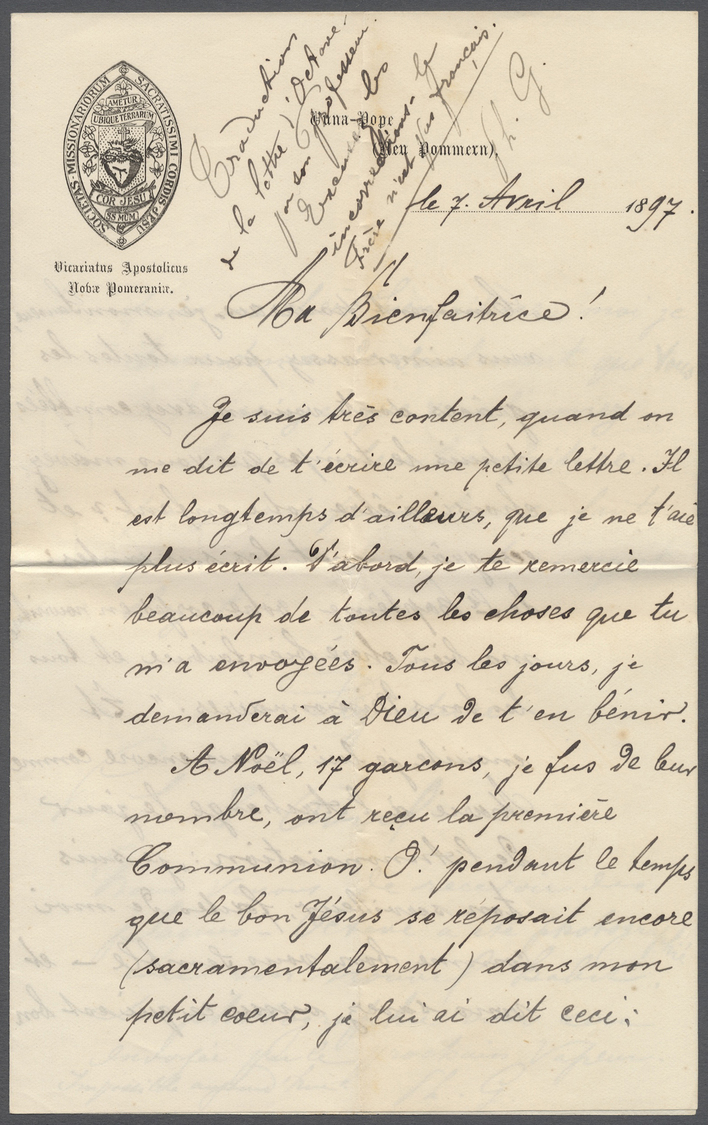 SOCIETAS·MISSIONARIORUM SACRATISSIMI CORDIS JESU
AMETUR
UBIQUE TERRARUM
COR JESU
SS MUM
Vicariatus Apostolicus
Novæ Pomeraniæ.
Traduction
de la lettre d'Octave
par son Professeur.
Excusez les
incorrections - le
Frère n'est pas français.
Ch. G.
Vuna-Pope
(Neu Pommern),
le 7. Avril 1897.
Ma Bienfaitrice!
Je suis très content, quand on
me dit de t'écrire une petite lettre. Il
est longtemps d'ailleurs, que je ne t'aie
plus écrit. D'abord, je te remercie
beaucoup de toutes les choses que tu
m'a envoyées. Tous les jours, je
demanderai à Dieu de t'en bénir.
A Noël, 17 garçons, je fus de leur
nombre, ont reçu la première
Communion. O! pendant le temps
que le bon Jésus se réposait encore
(sacramentalement) dans mon
petit coeur, je lui ai dit ceci: